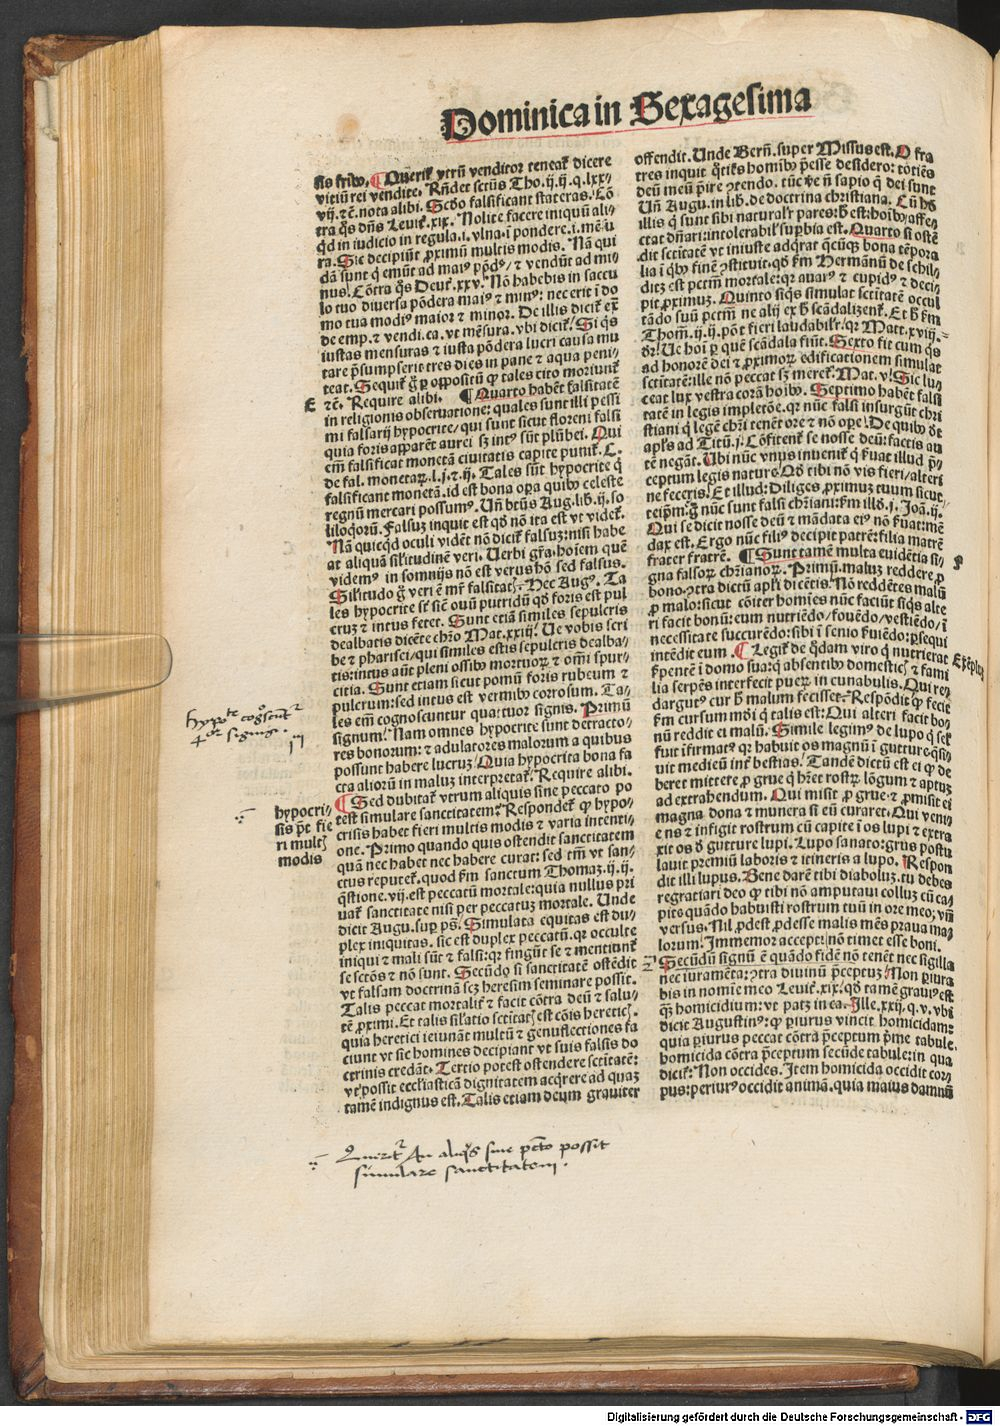 Dominica in Sexagesima
sis frib⁹. ¶ Querit̃ vtrũ venditor teneat̃ dicere
vitiũ rei vendite. Rñdet sctũs Tho. ij. ij. q. lxx-
vij. ⁊c̃. nota alibi. Scðo falsificant stateras. Cõ
tra q̃s dñs Leuit̃. xix. Nolite facere iniquũ ali-
q̃d in iudicio in regula. i. vlna. i pondere. i. mẽsu
ra. Sic decipiũt ꝓximũ multis modis. Nã qui
dã sunt q̃ emũt ad mai⁹ põd⁹/ ⁊ vendũt ad mi-
nus. Cõtra q̃s Deut̃. xxv. Nõ habebis in saccu
lo tuo diuersa põdera mai⁹ ⁊ min⁹: nec erit i do
mo tua modi⁹ maior ⁊ minor. De illis dicit̃ ex̃
de emp. ⁊ vendi. ca. vt mẽsura. vbi dicit̃. Si q̃s
iustas mensuras ⁊ iusta põdera lucri causa mu
tare p̃sumpserit tres dies in pane ⁊ aqua peni-
teat. Sequit̃ g̃ ꝑ oppositũ ꝙ tales cito moriunt̃
E ⁊c̃. Require alibi. ¶ Quarto habẽt falsitatẽ
in religionis obseruatione: quales sunt illi pessi
mi falsarij hypocrite/ qui sunt sicut floreni falsi
quia foris apparẽt aurei sꝫ int⁹ sũt plũbei. Qui
em̃ falsificat monetã ciuitatis capite punit̃. C.
de fal. monetaꝝ. l. j. ⁊ ij. Tales sũt hypocrite q̃
falsificant monetã. id est bona oꝑa quib⁹ celeste
regnũ mercari possum⁹. Uñ bt̃us Aug. lib. ij. so
liloqorũ. Falsuꝫ inquit est qð nõ ita est vt videt̃.
Nã quicq̃d oculi vidẽt nõ dicit̃ falsuꝫ: nisi habe
at aliquã sil̃itudinẽ veri. Uerbi gr̃a. hoiem quẽ
videm⁹ in somnijs nõ est verus hõ sed falsus.
Sil̃itudo g̃ veri ẽ mr̃ falsitatꝭ. Hec Aug⁹. Ta
les hypocrite st̃ siẽ ouũ putridũ qð foris est pul
cruꝫ ⁊ intus fetet. Sunt etiã similes sepulcris
dealbatis dicẽte chr̃o Mat. xxiij. Ue vobis scri
be ⁊ pharisei/ qui similes estis sepulcris dealba-
tis: intus aũt pleni ossib⁹ mortuoꝝ ⁊ om̃i spur-
citia. Sunt etiam sicut pomũ foris rubeum ⁊
pulcrum: sed intus est vermib⁹ corrosum. Ta-
les em̃ cognoscuntur quattuor signis. Primũ
signum. Nam omnes hypocrite sunt detracto-
res bonorum: ⁊ adulatores malorum a quibus
possunt habere lucruꝫ. Quia hypocrita bona fa
cta aliorũ in maluꝫ interpretat̃. Require alibi.
¶ Sed dubitat̃ vtrum aliquis sine peccato po
test simulare sanctitatem: Respondet̃ ꝙ hypo-
crisis habet fieri multis modis ⁊ varia intenti-
one. Primo quando quis ostendit sanctitatem
quã nec habet nec habere curat: sed tm̃ vt san-
ctus reputet̃. quod fm̃ sanctum Thomaꝫ. ij. ij.
q̃stione. vij. est peccatũ mortale: quia nullus pri
uat̃ sanctitate nisi per peccatuꝫ mortale. Unde
dicit Augu. sup̃ ps̃. Simulata equitas est du-
plex iniquitas. sic est duplex peccatũ. qꝛ occulte
iniqui ⁊ mali sũt ⁊ falsi: qꝛ fingũt se ⁊ mentiunt̃
se sctõs ⁊ nõ sunt. Secũdo si sanctitatẽ ostẽdit
vt falsam doctrinã scꝫ heresim seminare possit.
Talis peccat mortalit̃ ⁊ facit cõtra deũ ⁊ salu-
tẽ ꝓximi. Et talis sil̃atio sctitatꝭ est cõis hereticꝭ.
quia heretici ieiunãt multũ ⁊ genuflectiones fa
ciunt vt sic homines decipiant vt suis falsis do
ctrinis credãt. Tertio potest ostendere sctitatẽ:
vt possit ecclesiasticã dignitatem acq̃rere ad quaꝫ
tamẽ indignus est. Talis etiam deum grauiter
hypoᵗᵉ cog̃scũt̃
4ᵒʳ signis.
hypocri-
sis põt fie
ri multꝭ
modis
offendit. Unde Berñ. super Missus est. O fra
tres inquit q̃tiẽs homib⁹ p̃esse desidero: totiẽs
deũ meũ p̃ire ꝯtendo. tũc ve ñ sapio q̃ dei sunt
Uñ Augu. in lib. de doctrina christiana. Cũ hõ
illis q̃ sunt sibi natural'r pares: hͦ est: hoib⁹ affe-
ctat dñari: intolerabil' suꝑbia est. Quarto si ostẽ
dit sctitatẽ vt iniuste adq̃rat q̃cũqꝫ bona tẽpora
lia i qͥb⁹ finẽ ꝯstituit. qð fm̃ Hermãnũ de schil-
ditz est petm̃ mortale: qꝛ auar⁹ ⁊ cupid⁹ ⁊ deci-
pit ꝓximuꝫ. Quinto siq̃s simulat sctitatẽ occul
tãdo suũ petm̃ ne alij ex hͦ scãdalizent̃. Et hͦ fm̃
Thom̃. ij. ij. põt fieri laudabil'r. qꝛ Matt. xviij.
dr̃. Ue hoi per quẽ scãdala fiũt. Sexto fit cum q̃s
ad honorẽ dei ⁊ ꝓximoꝝ edificationem simulat
sctitatẽ: ille nõ peccat sꝫ meret̃. Mat. v. Sic lu-
ceat lux vestra corã hoib⁹. Septimo habẽt falsi
tatẽ in legis impletõe. qꝛ nũc falsi insurgũt chri
stiani q̃ legẽ chr̃i tenẽt ore ⁊ nõ oꝑe. De quib⁹ ðt
apl's ad Titũ. j. Cõfitent̃ se nosse deũ: factis au
tẽ negãt. Ubi nũc vnus inuenit̃ q̃ s̃uat illud p̃-
ceptum legis nature. Qð tibi nõ vis fieri/ alteri
ne feceris. Et illud: Diliges ꝓximuꝫ tuum sicut
teip̃m. g̃ nũc sunt falsi chr̃iani: fm̃ illð. j. Joã. ij.
Qui se dicit nosse deũ ⁊ mãdata ei⁹ nõ s̃uat: mẽ
dax est. Ergo nũc fili⁹ decipit patrẽ: filia matrẽ
frater fratrẽ. ¶ Sunt tamẽ multa euidẽtia si- F
gna falsoꝝ chr̃ianoꝝ. Primũ. maluꝫ reddere ꝓ
bono. ꝯtra dictũ apl'i dicẽtis. Nõ reddẽtes malũ
ꝓ malo: sicut cõiter homines nũc faciũt siq̃s alte
ri facit bonũ: eum nutriẽdo/ fouẽdo/ vestiẽdo/ ĩ
necessitate succurẽdo: sibi ĩ senio s̃uiẽdo: ꝑsequi
intẽdit eum. ¶ Legit̃ de q̃dam viro q̃ nutrierat Exẽpluꝫ
s̃pentẽ ĩ domo sua: q̃ absentib⁹ domesticꝭ ⁊ fami
lia serpẽs interfecit pueꝝ in cunabulis. Qui re-
dargut⁹ cur hͦ malum fecisset. Respõdit ꝙ fecit
fm̃ cursum mõi q̃ talis est: Qui alteri facit bo-
nũ reddit ei malũ. Simile legim⁹ de lupo q̃ sel'
fuit ĩfirmat⁹ qꝛ habuit os magnũ ĩ gutture. q̃si-
uit medicũ int̃ bestias. Tandẽ dictũ est ei ꝙ de
beret mittere ꝓ grue q̃ hr̃et rostꝝ lõgum ⁊ aptuꝫ
ad extrahendum. Qui misit ꝓ grue ⁊ ꝓmisit ei
magna dona ⁊ munera si eũ curaret. Qui veni
ens ⁊ infigit rostrum cũ capite ĩ os lupi ⁊ extra
xit os ð gutture lupi. Lupo sanato: grus postu
lauit premiũ laboris ⁊ itineris a lupo. Respon
dit illi lupus. Bene darẽ tibi diabolus. tu debes
regratiari deo ꝙ tibi nõ amputaui colluꝫ cũ ca-
pite quãdo habuisti rostrum tuũ in ore meo; vñ
versus. Nil ꝓdest ꝓdesse malis mẽs praua ma-
lorum. Immemor accepti nõ timet esse boni.
Secũdũ signũ ẽ quãdo fidẽ nõ tenẽt nec sigilla
nec iuramẽta: ꝯtra diuinũ p̃ceptuꝫ. Non ꝑiura
bis in nomĩe meo Leuit̃. xix. qð tamẽ graui⁹ est
q̃ꝫ homicidium: vt patꝫ in ca. Ille. xxij. q. v. vbi
dicit Augustin⁹: ꝙ ꝑiurus vincit homicidam:
quia ꝑiurus peccat cõtra p̃ceptum p̃me tabule.
homicida cõtra p̃ceptum secũde tabule: in qua
dicit̃: Non occides. Item homicida occidit cor-
pus: periur⁹ occidit animã. quia maius damnũ
Querit̃ An aliq̃s sine pctõ possit
simulare sanctitatem.
Digitalisierung gefördert durch die Deutsche Forschungsgemeinschaft - DFG